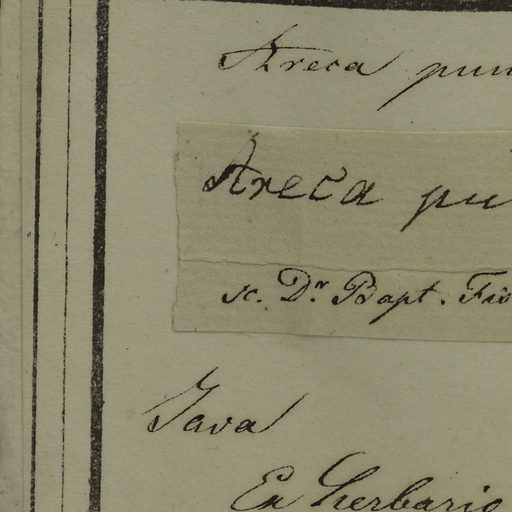 Areca pun
Areca pu
sc. Dr. Bapt. Fis
Java
Ex Herbario